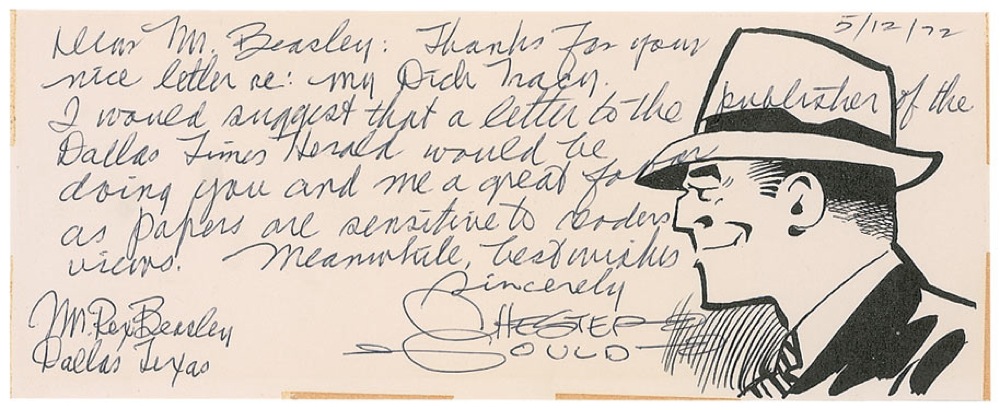 5/12/72
Dear Mr. Beasley: Thanks for your
nice letter re: my Dick Tracy.
I would suggest that a letter to the publisher of the
Dallas Times Herald would be
doing you and me a great favor
as papers are sensitive to readers
views. Meanwhile, best wishes
Sincerely
CHESTER
GOULD
Mr. Rex Beasley
Dallas Texas